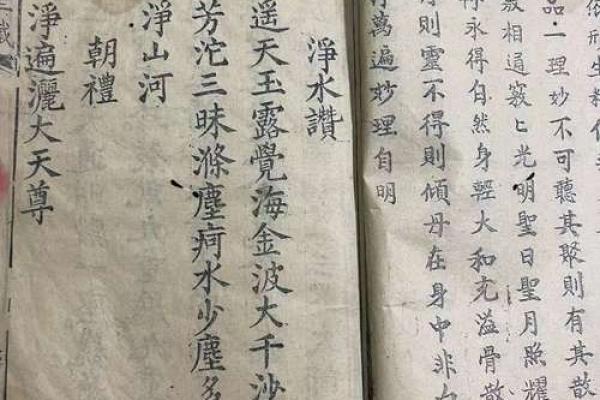 依形生
品一理妙不可聽其聚則有其散
竅相通竅匕光明聖日聖月照耀
永得自然身輕大和充溢骨散
則靈不得則傾丹在身中非
萬遍妙理自明
淨水讚
遥天玉露覺海金波大千沙
芳沱三昧滌塵疴水少塵多
淨山河
朝禮
淨遍灑大天尊